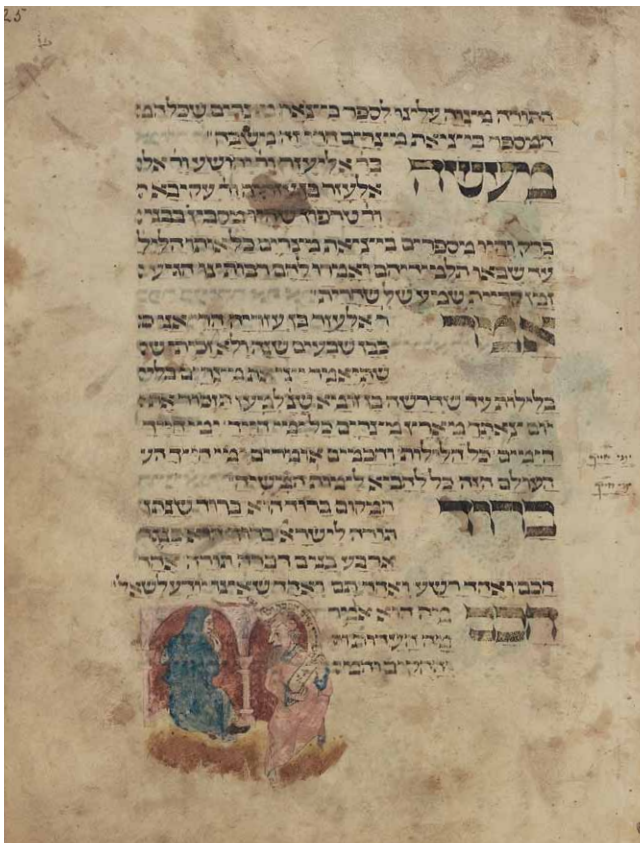 25
התורה מצוה עלינו לספר ביציאת מצרים שכל המ
המספר ביציאת מצרים הרי זה משובח
מעשה
בר אליעזר ור יהושע ור אל
אלעזר בן עזריה ור עקיבא
ור טרפון שהיו מסבין בבני
ברק והיו מספרים ביציאת מצרים כל אותו הליל
עד שבאו תלמידיהם ואמרו להם רבותינו הגיע
זמן קריית שמע של שחרית
אמר
ר אלעזר בן עזריה הרי אני
כבן שבעים שנה ולא זכיתי ש
שתיאמר יציאת מצרים בליל
בלילות עד שדרשה בן זומא שנ למען תזכור את
יום צאתך מארץ מצרים כל ימי חייך ימי חייך
הימים כל הלילות וחכמים אומרים ימי חייך הע
העולם הזה כל להביא לימות המשיח
ברוך
המקום ברוך הוא ברוך שנתן
תורה לישרא ברוך הוא כנגד
ארבע בנים דברה תורה אחד
חכם ואחד רשע ואחד תם ואחד שאינו יודע לשאל
חכם
מה הוא אומר
מה העדות ו